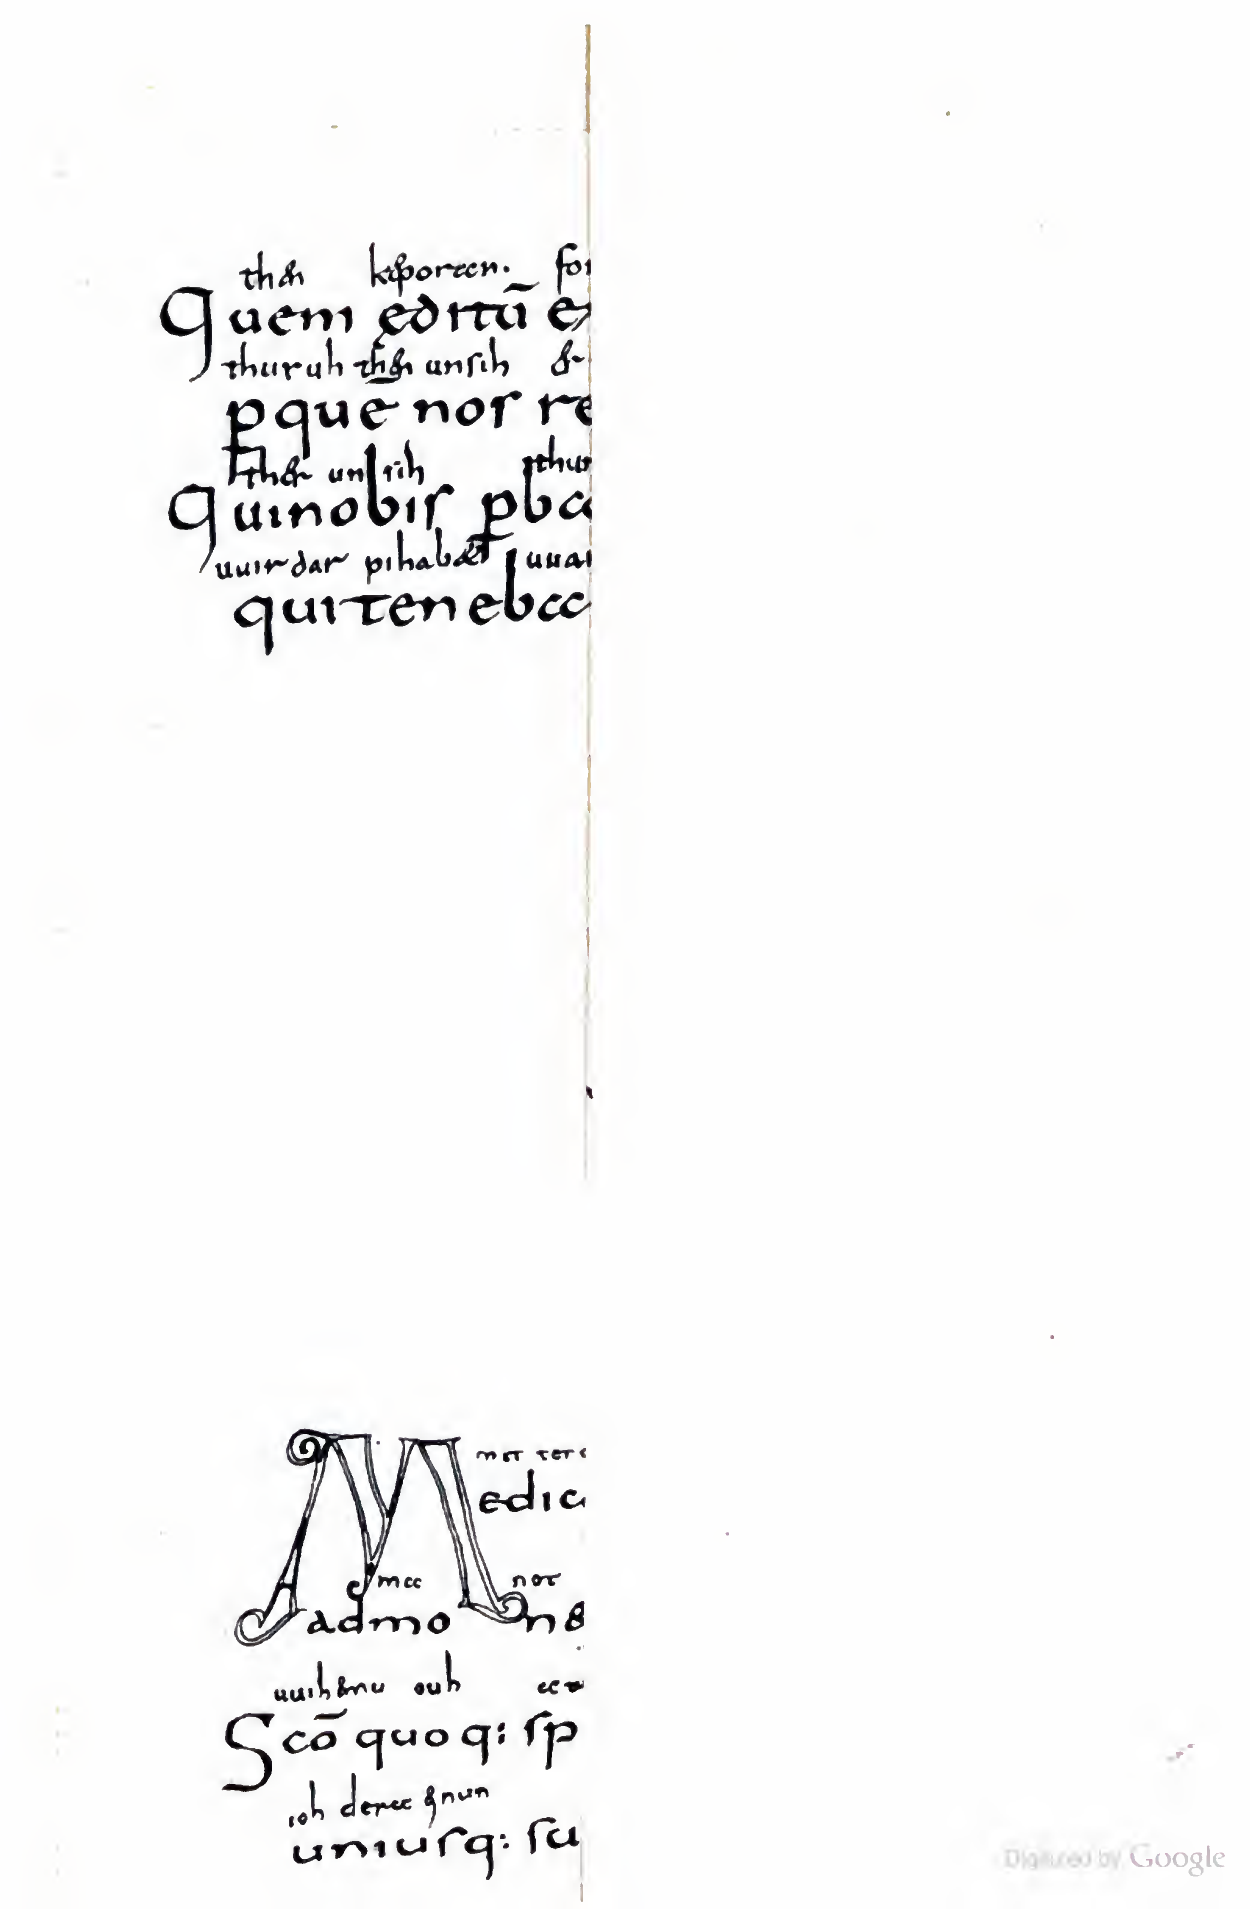 then kiporan. for
quem editū ex
thuruh then unsih er
p que nos re
then unsih thur
qui nobis p ba
uuirdar pihabet uuar
qui teneba
mit ter
Medic
ma not
admo n&
uuihemu ouh
Scō quoq: sp
ioh dera
uniusq: su
Digitized by Google